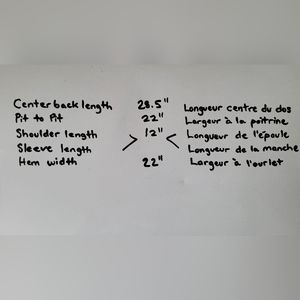 Center back length 28.5" Longueur centre du dos
Pit to Pit 22" Largeur à la poitrine
Shoulder length 12" Longueur de l'épaule
Sleeve length > < Longueur de la manche
Hem width 22" Largeur à l'ourlet